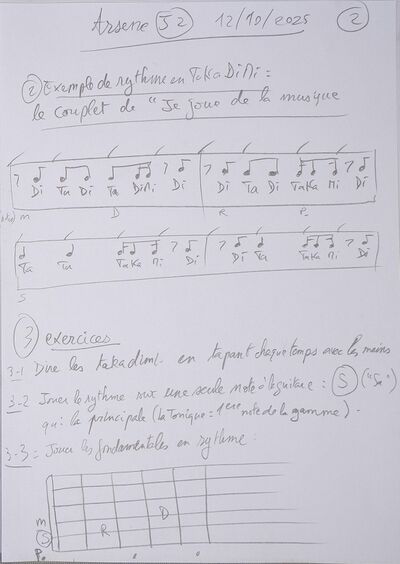 Arsene S2 12/10/2025 2
2 Exemple de rythme en TaKaDiMi =
le couplet de "Je joue de la musique
Di Ta Di Ta DiMi Di Di Ta Di TaKa Mi Di
m D R P
Ta Ta TaKa Mi Di Di Ta TaKa Mi Di
S
3 exercices
3-1 Dire les takadimi en tapant chaque temps avec les mains
3-2 Jouer le rythme sur une seule note à la guitare : S ("Sa")
qui la principale (la Tonique = 1ere note de la gamme).
3-3 = Jouer les fondamentales en rythme :
m
D
S R
P